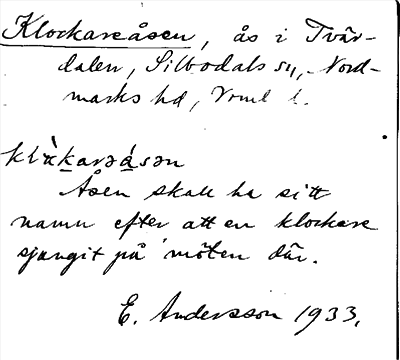 Klockareåsen, ås i Tvär-
dalen, Silbodals sn, Nord-
marks hd, Vrml l.
klὰkarəásən
Åsen skall ha sitt
namn efter att en klockare
sjungit på möten där.
E. Andersson 1933.